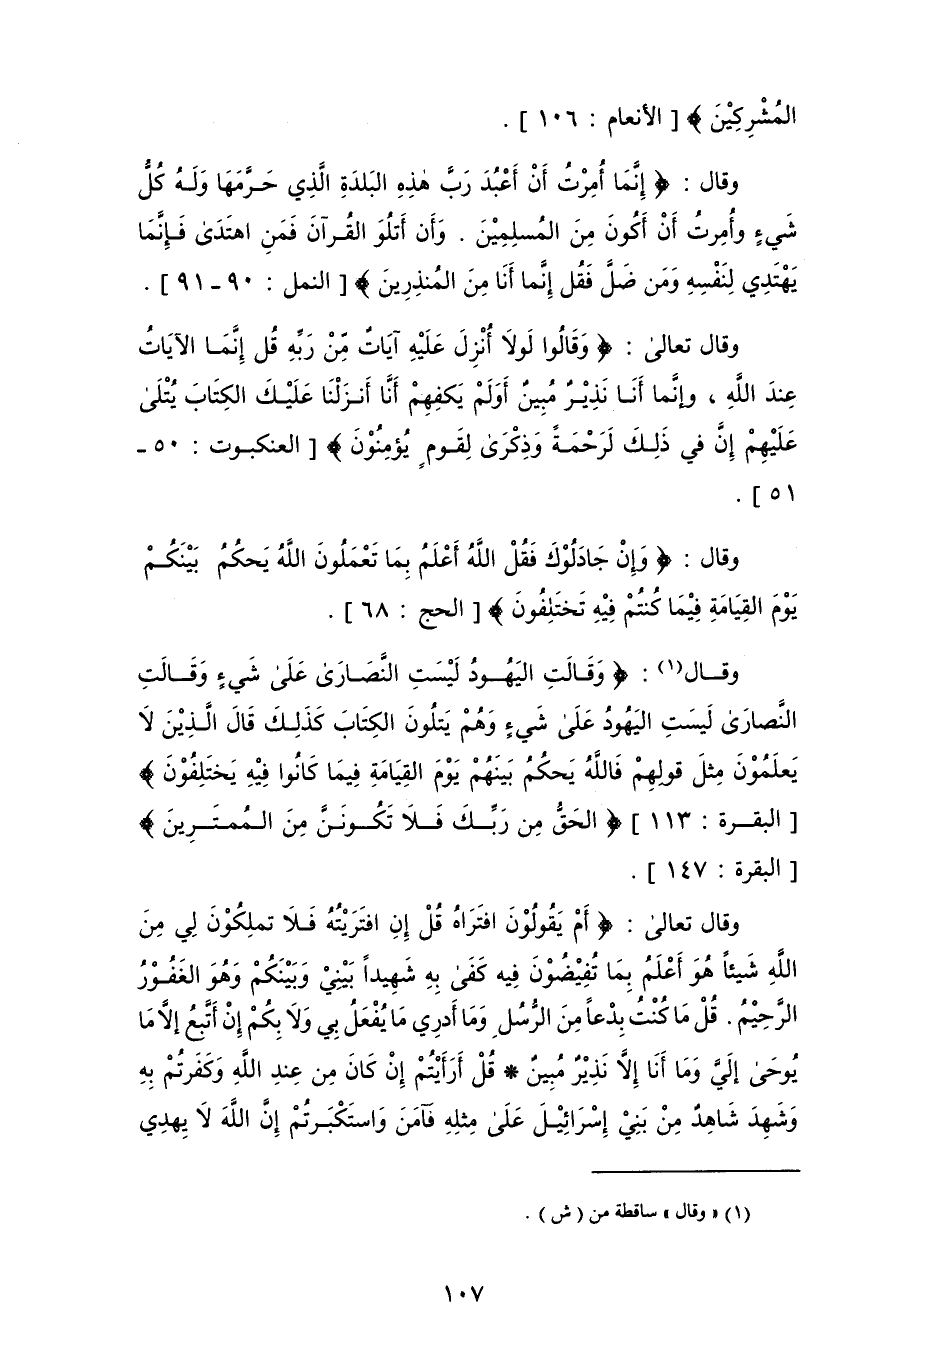 المُشْرِكِيْنَ ﴾ [ الأنعام : ١٠٦ ] .
وقال : ﴿ إِنَّمَا أُمِرْتُ أَنْ أَعْبُدَ رَبَّ هٰذِهِ البَلدَةِ الَّذِي حَرَّمَهَا وَلَهُ كُلُّ
شَيءٍ وأُمِرتُ أَنْ أَكُونَ مِنَ المُسلِمِيْنَ . وَأَن أَتلُوَ القُرآنَ فَمَنِ اهتَدَىٰ فَإِنَّمَا
يَهْتَدِي لِنَفْسِهِ وَمَن ضَلَّ فَقُل إِنَّما أَنَا مِنَ المُنذِرِينَ ﴾ [ النمل : ٩٠ ـ ٩١ ] .
وقال تعالىٰ : ﴿ وَقَالُوا لَولَا أُنْزِلَ عَلَيْهِ آيَاتٌ مِّنْ رَبِّهِ قُل إِنَّمَا الآيَاتُ
عِندَ اللَّهِ ، وإنَّما أَنَا نَذِيْرٌ مُبِينٌ أَوَلَمْ يَكفِهِمْ أَنَّا أَنزَلْنَا عَلَيْكَ الكِتَابَ يُتْلَىٰ
عَلَيْهِمْ إِنَّ في ذَلِكَ لَرَحْمَةً وَذِكْرَىٰ لِقَومٍ يُؤمِنُوْنَ ﴾ [ العنكبوت : ٥٠ ـ
٥١ ] .
وقال : ﴿ وَإِنْ جَادَلُوْكَ فَقُلْ اللَّهُ أَعْلَمُ بِمَا تَعْمَلُونَ اللَّهُ يَحكُمُ بَيْنَكُمْ
يَوْمَ القِيَامَةِ فِيْمَا كُنتُمْ فِيْهِ تَختَلِفُونَ ﴾ [ الحج : ٦٨ ] .
وقال(١) : ﴿ وَقَالَتِ اليَهُودُ لَيْسَتِ النَّصَارَىٰ عَلَىٰ شَيءٍ وَقَالَتِ
النَّصارَىٰ لَيسَتِ اليَهُودُ عَلَىٰ شَيءٍ وَهُمْ يَتلُونَ الكِتَابَ كَذَلِكَ قَالَ الَّذِيْنَ لَا
يَعلَمُوْنَ مِثلَ قَولِهِمْ فَاللَّهُ يَحكُمُ بَينَهُمْ يَوْمَ القِيَامَةِ فِيمَا كَانُوا فِيْهِ يَختَلِفُوْنَ ﴾
[ البقرة : ١١٣ ] ﴿ الحَقُّ مِن رَبِّكَ فَلَا تَكُونَنَّ مِنَ المُمتَرِينَ ﴾
[ البقرة : ١٤٧ ] .
وقال تعالىٰ : ﴿ أَمْ يَقُولُوْنَ افتَرَاهُ قُلْ إِنِ افتَرَيْتُهُ فَلَا تملِكُوْنَ لِي مِنَ
اللَّهِ شَيئاً هُوَ أَعْلَمُ بِمَا تُفِيْضُوْنَ فِيه كَفَىٰ بِهِ شَهِيداً بَيْنِيْ وَبَيْنَكُمْ وَهُوَ الغَفُوْرُ
الرَّحِيْمُ . قُلْ مَا كُنْتُ بِدْعاً مِنَ الرُّسُلِ وَمَا أَدرِي مَا يُفْعَلُ بِي وَلَا بِكُمْ إِنْ أَتَّبِعُ إلَّا مَا
يُوحَىٰ إلَيَّ وَمَا أَنَا إِلَّا نَذِيْرٌ مُبِينٌ * قُلْ أَرَأَيْتُمْ إِنْ كَانَ مِن عِندِ اللَّهِ وَكَفَرتُمْ بِهِ
وَشَهِدَ شَاهِدٌ مِنْ بَنِيْ إِسْرَائِيْلَ عَلَىٰ مِثلِهِ فَآمَنَ وَاستَكْبَرتُمْ إِنَّ اللَّهَ لَا يهدِي
(١) « وقال » ساقطة من ( ش ) .
١٠٧